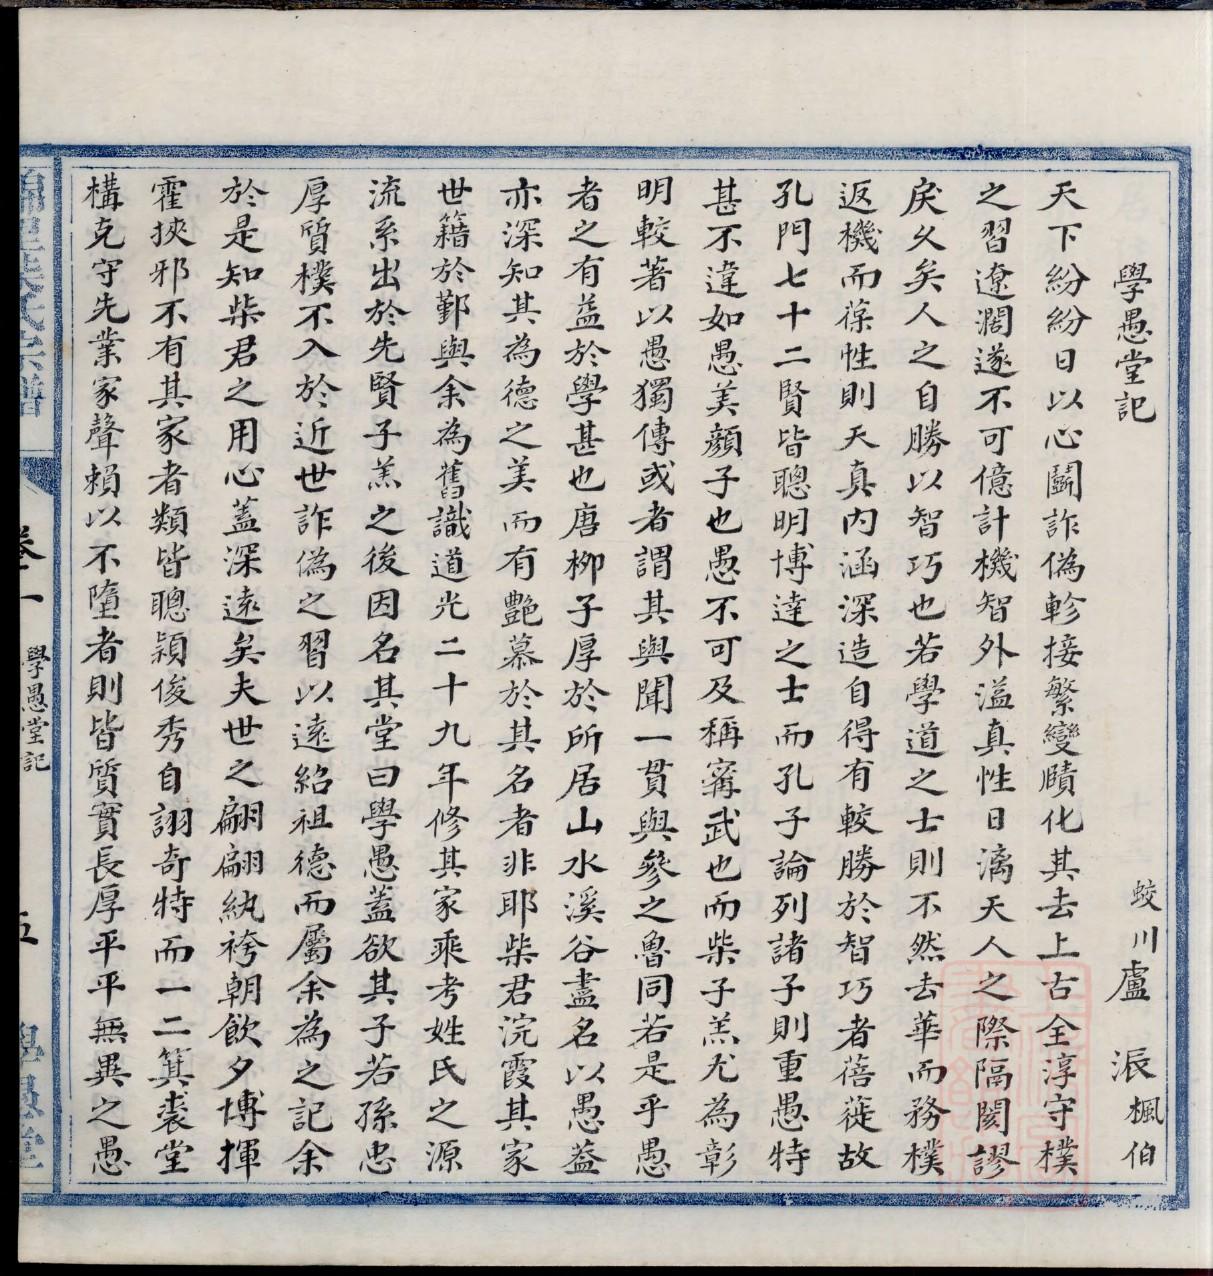 學愚堂記
蛟川盧派楓伯
天下紛紛日以心鬬詐偽軫接繁變賾化其去上古全淳守樸
之習遼濶遂不可億計機智外溢真性日漓天人之際隔閡謬
戾久矣人之自勝以智巧也若學道之士則不然去華而務樸
返機而葆性則天真內涵深造自得有較勝於智巧者蓓蓰故
孔門七十二賢皆聰明博達之士而孔子論列諸子則重愚特
甚不違如愚美顏子也愚不可及稱甯武也而柴子羔尤為彰
明較著以愚獨傳或者謂其與聞一貫與參之魯同若是乎愚
者之有益於學甚也唐柳子厚於所居山水溪谷盡名以愚蓋
亦深知其為德之美而有艷慕於其名者非耶柴君浣霞其家
世籍於鄞與余為舊識道光二十九年修其家乘考姓氏之源
流系出於先賢子羔之後因名其堂曰學愚蓋欲其子若孫忠
厚質樸不入於近世詐偽之習以遠紹祖德而屬余為之記余
於是知柴君之用心蓋深遠矣夫世之翩翩紈袴朝飲夕博揮
霍挾邪不有其家者類皆聰穎俊秀自詡奇特而一二箕裘堂
構克守先業家聲賴以不墮者則皆質實長厚平平無異之愚
卷一
學愚堂記
五
學愚堂